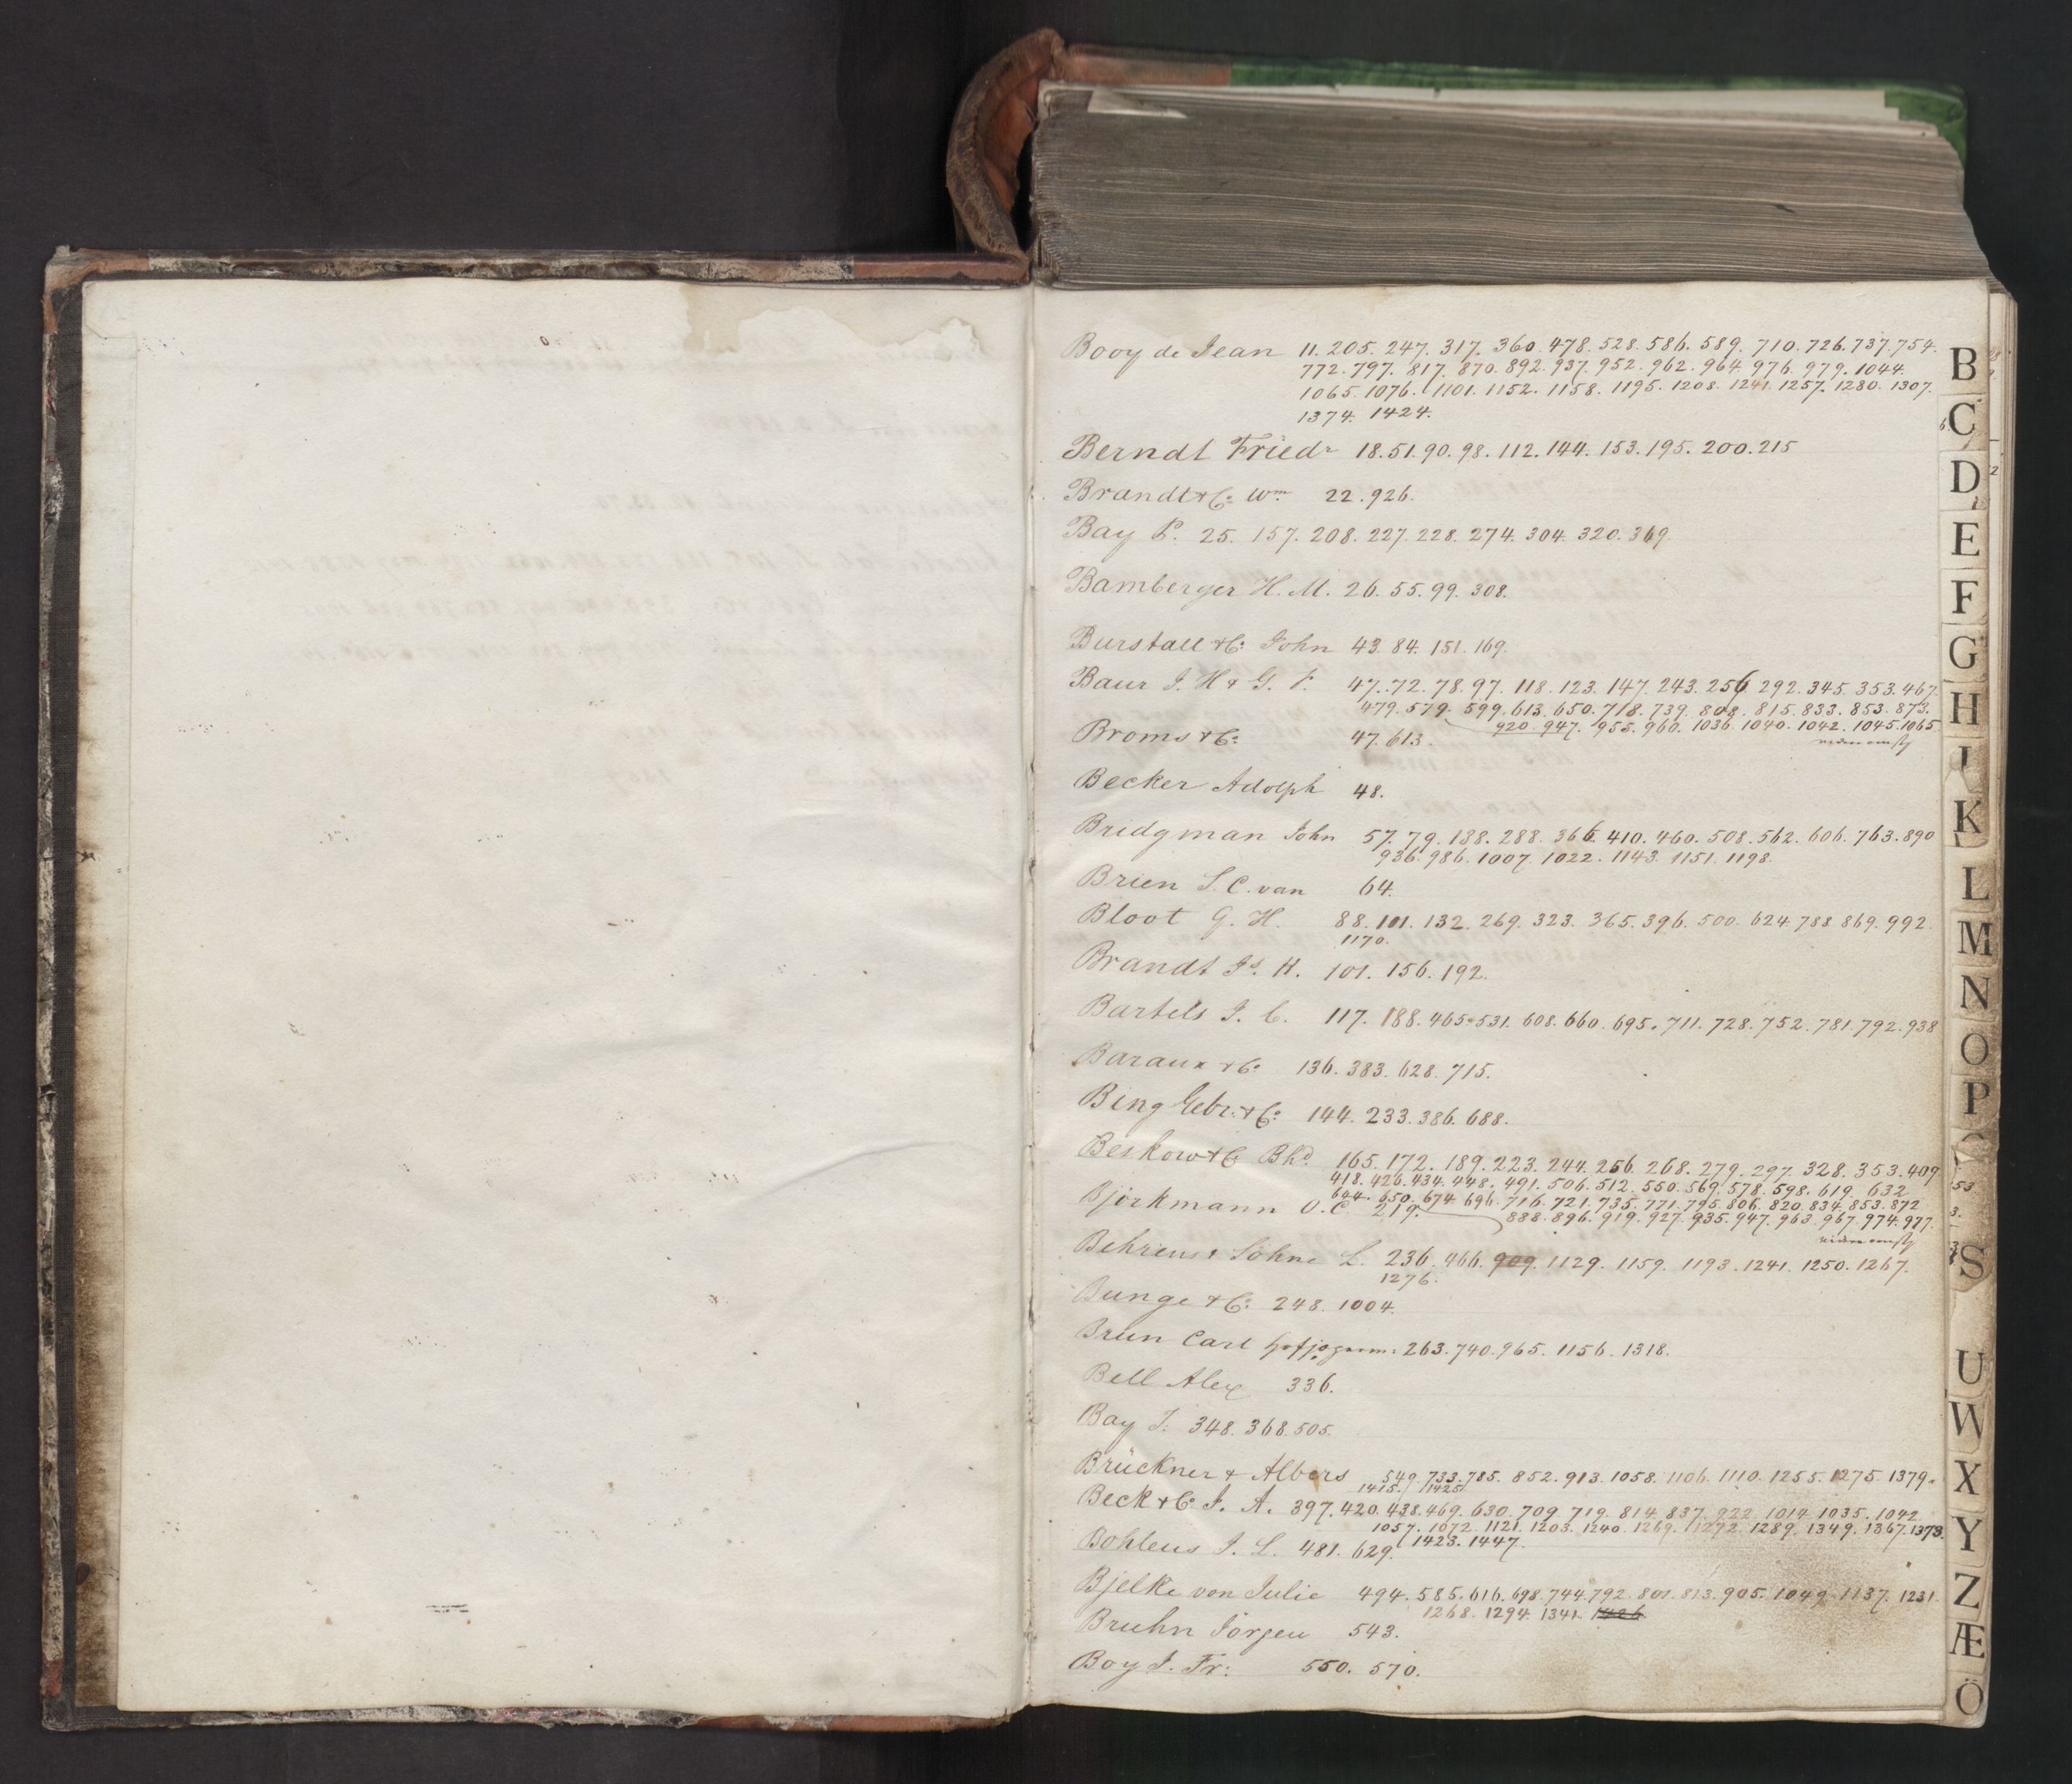 Booy de Jean 11. 205. 247. 317. 360. 478. 528. 586. 589. 710. 726. 737. 754.
772. 797. 817. 870. 892. 937. 952. 962. 964. 976. 979. 1044.
1065. 1076. 1101. 1152. 1158. 1195. 1208. 1241. 1257. 1280. 1307.
1374. 1424.
Berndt Friedr 18. 51. 90. 98. 112. 144. 153. 195. 200. 215
Brandt & Co Wm 22. 926.
Bay P. 25. 157. 208. 227. 228. 274. 304. 320. 369.
Bamberger H. M. 26. 55. 99. 308.
Burstall & Co: John 43. 84. 151. 169.
Baur J. H & G. F. 47. 72. 78. 97. 118. 123. 147. 243. 256. 292. 345. 353. 467.
479. 579. 599. 613. 650. 718. 739. 808. 815. 833. 853. 873.
920. 947. 955. 960. 1036. 1040. 1042. 1045. 1065.
Broms & Co: 47. 613.
Becker Adolph 48.
Bridgman John 57. 79. 138. 288. 366. 410. 460. 508. 562. 606. 763. 890
936. 986. 1007. 1022. 1143. 1151. 1198.
Brien S. C. van 64.
Bloot G. H. 88. 101. 132. 269. 323. 365. 396. 500. 624. 788. 869. 992.
1170.
Brandt Js. H. 101. 156. 192.
Bartels J. C. 117. 188. 465. 531. 608. 660. 695. 711. 728. 752. 781. 792. 938
Baraux & Co 136. 383. 628. 715.
Bing Gebr. & Co: 144. 233. 386. 688.
Beskow & Co Bhd. 165. 172. 189. 223. 244. 256. 268. 279. 297. 328. 353. 409
418. 426. 434. 448. 491. 506. 512. 550. 569. 578. 598. 619. 632
644. 650. 674. 696. 716. 721. 735. 771. 795. 806. 820. 834. 853. 872
888. 896. 919. 927. 935. 947. 963. 967. 974. 977.
Bjorkmann O. C. 219.
Behrens & Söhne L. 236. 466. 909. 1129. 1159. 1193. 1241. 1250. 1267.
1276.
Bunge & Co: 248. 1004.
Brun Carl 263. 740. 965. 1156. 1318.
Bell Alex 336.
Bay J. 348. 368. 505.
Brückner & Albers 549. 733. 785. 852. 913. 1058. 1106. 1110. 1255. 1275. 1379.
1415. 1425
Beck & Co J. A. 397. 420. 438. 469. 630. 709. 719. 814. 837. 922. 1014. 1035. 1042
1057. 1072. 1121. 1203. 1240. 1269. 1272. 1289. 1349. 1367. 1373.
1423. 1447.
Bohlens J. L. 481. 629.
Bjelke von Julie 494. 585. 616. 698. 744. 792. 801. 813. 905. 1049. 1137. 1231
1268. 1294. 1341.
Bruhn Jörgen 543.
Boy J. Fr: 550. 570.
B
C
D
E
F
G
H
I
K
L
M
N
O
P
S
U
W
X
Y
Z
Æ
Ö